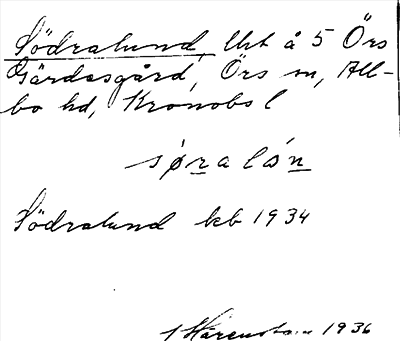 Södralund, lht å 5 Örs
Gärdesgård, Örs sn, All-
bo hd, Kronobs l
sǿralǿn
Södralund kb 1934
1936